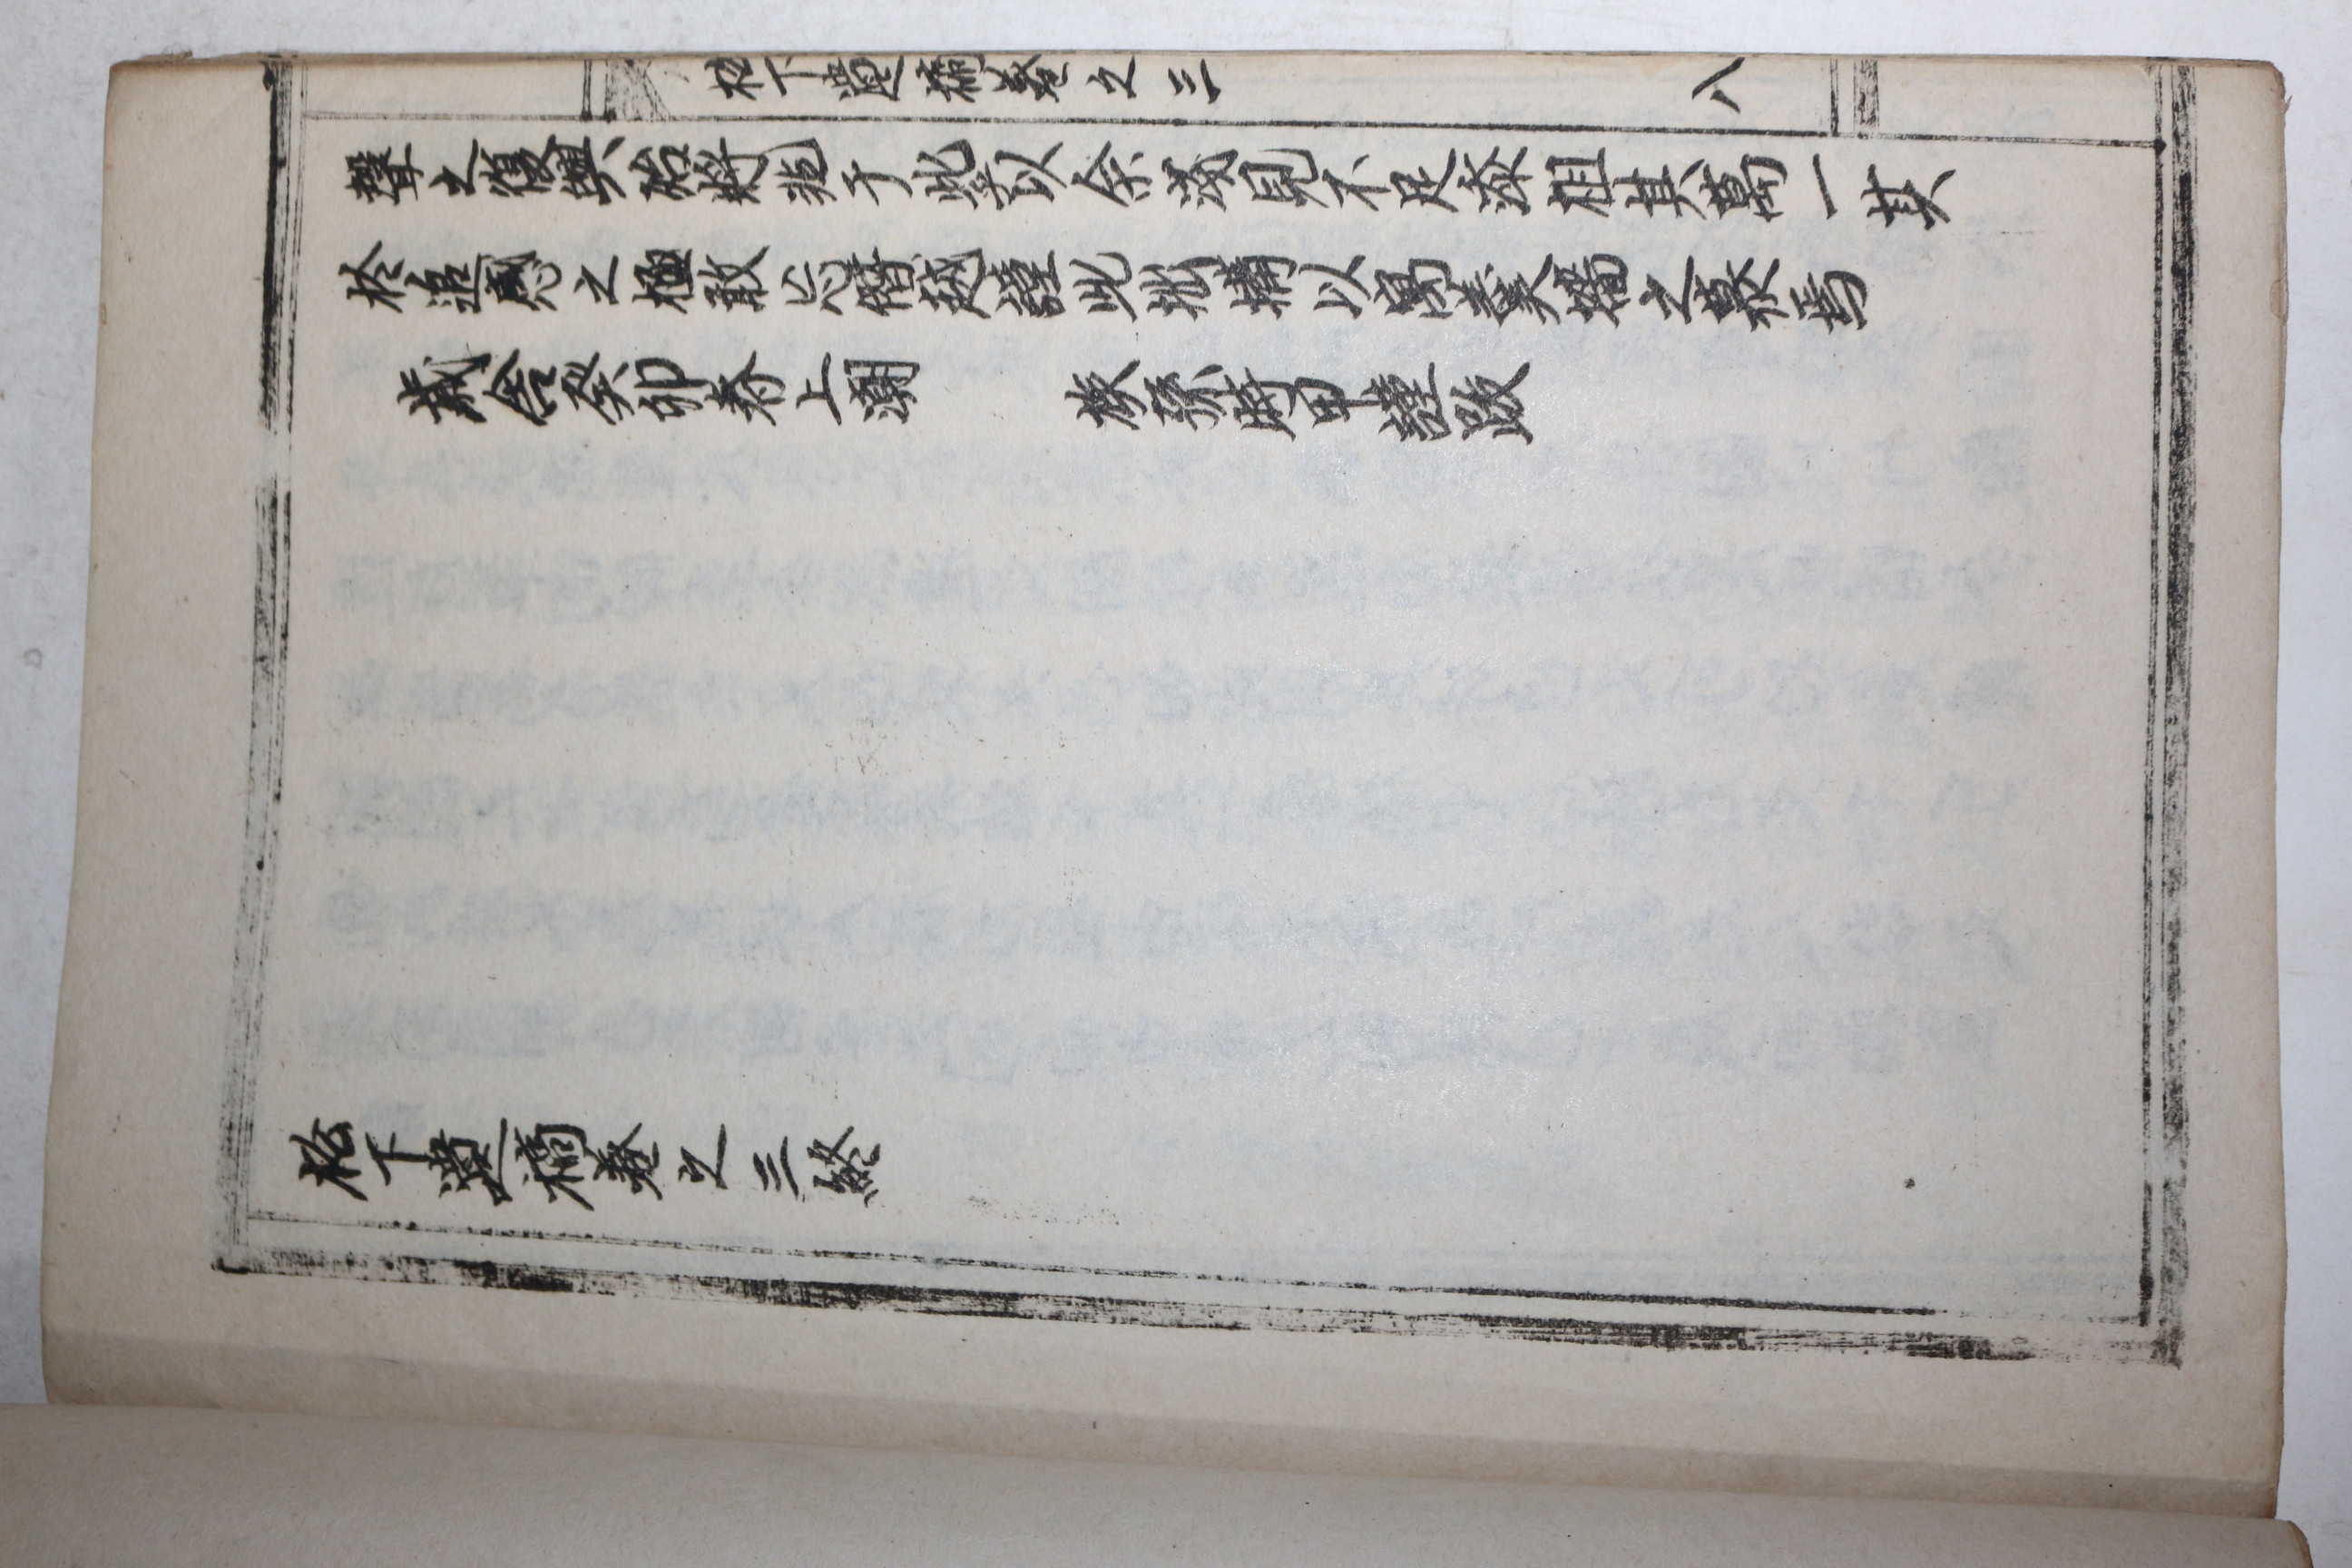 松下遺稿卷之三
八
聲之復興殆將兆于此乎以余淺見不足添祖其萬一其
於追感之極敢忘僭越謹此拙搆以寓羹墻之慕焉
歲舍癸卯春上潮
族孫時甲謹跋
松下遺稿卷之三終